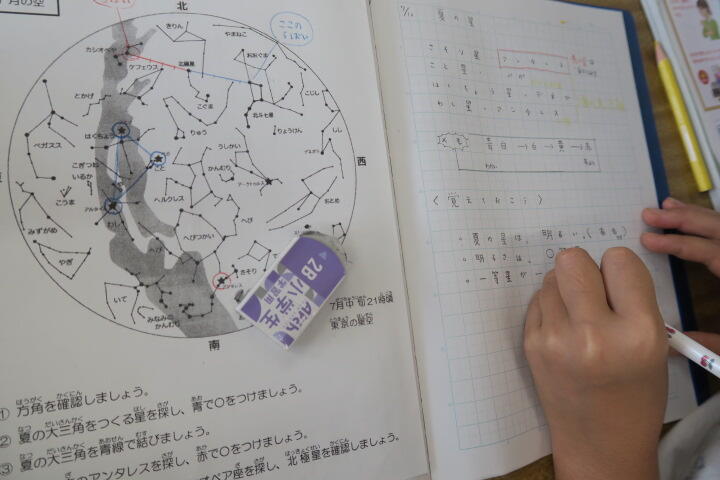 月の空
北
きりん
やまねこ
ここの
5ばい
カシオペヤ
ケフェウス
北極星
おおぐま
こじし
とかげ
こぐま
北斗七星
はくちょう
りゅう
りょうけん
しし
ペガスス
うしかい
デネボラ
西
こぎつね
こと
かんむり
いるか
アークトゥルス
こうま
アルタイル
ヘルクレス
おとめ
わし
へび
みずがめ
へび
へびつかい
やぎ
さそり
アンタレス
いて
みなみの
かんむり
南
2B
小学生
学習用
7月中旬21時頃
東京の星空
① 方角を確認しましょう。
② 夏の大三角をつくる星を探し、青で○をつけましょう。
③ 夏の大三角を青線で結びましょう。
のアンタレスを探し、赤で○をつけましょう。
ペア座を探し、北極星を確認しましょう。
夏の星
さそり星
こと星、
はくちょう星、
わし星、
メモ
青白→白→黄→赤
〈覚えておこう〉
。夏の星は、明るい。
。明るさは、
。一等星が